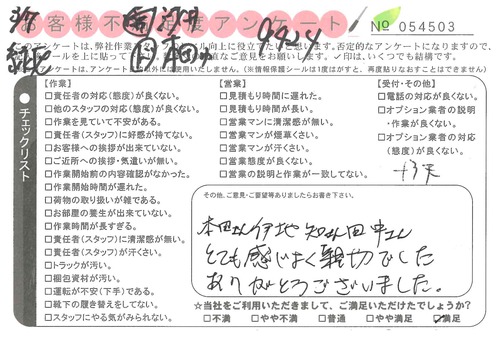 お客様不満足度アンケート
№ 054503
このアンケートは、弊社作業スタッフのスキル向上に役立てたいと思います。否定的なアンケートになりますので、
直なご意見をお願いします。✓印は、いくつでも結構です。
チェックリスト
【作業】
□責任者の対応(態度)が良くない。
□他のスタッフの対応(態度)が良くない。
□作業を見ていて不安がある。
□責任者(スタッフ)に好感が持てない。
□お客様への挨拶が出来ていない。
□ご近所への挨拶・気遣いが無い。
□作業開始前の内容確認がなかった。
□作業開始時間が遅れた。
□荷物の取り扱いが雑である。
□お部屋の養生が出来ていない。
□作業時間が長すぎる。
□責任者(スタッフ)に清潔感が無い。
□責任者(スタッフ)が汗くさい。
□トラックが汚い。
□梱包資材が汚い。
□運転が不安(下手)である。
□靴下の履き替えをしてない。
□スタッフにやる気がみられない。
【営業】
□見積もり時間に遅れた。
□見積もり時間が長い。
□営業マンに清潔感が無い。
□営業マンが煙草くさい。
□営業マンが汗くさい。
□営業態度が良くない。
□営業の説明と作業が一致してない。
【受付・その他】
□電話の対応が良くない。
□オプション業者の説明
・作業が良くない。
□オプション業者の対応
(態度)が良くない。
その他、ご意見・ご要望等ありましたらお書き下さい。
とても感じよく親切でした
ありがとうございました。
☆当社をご利用いただきまして、ご満足いただけたでしょうか?
□不満 □やや不満 □普通 □やや満足 ☑満足